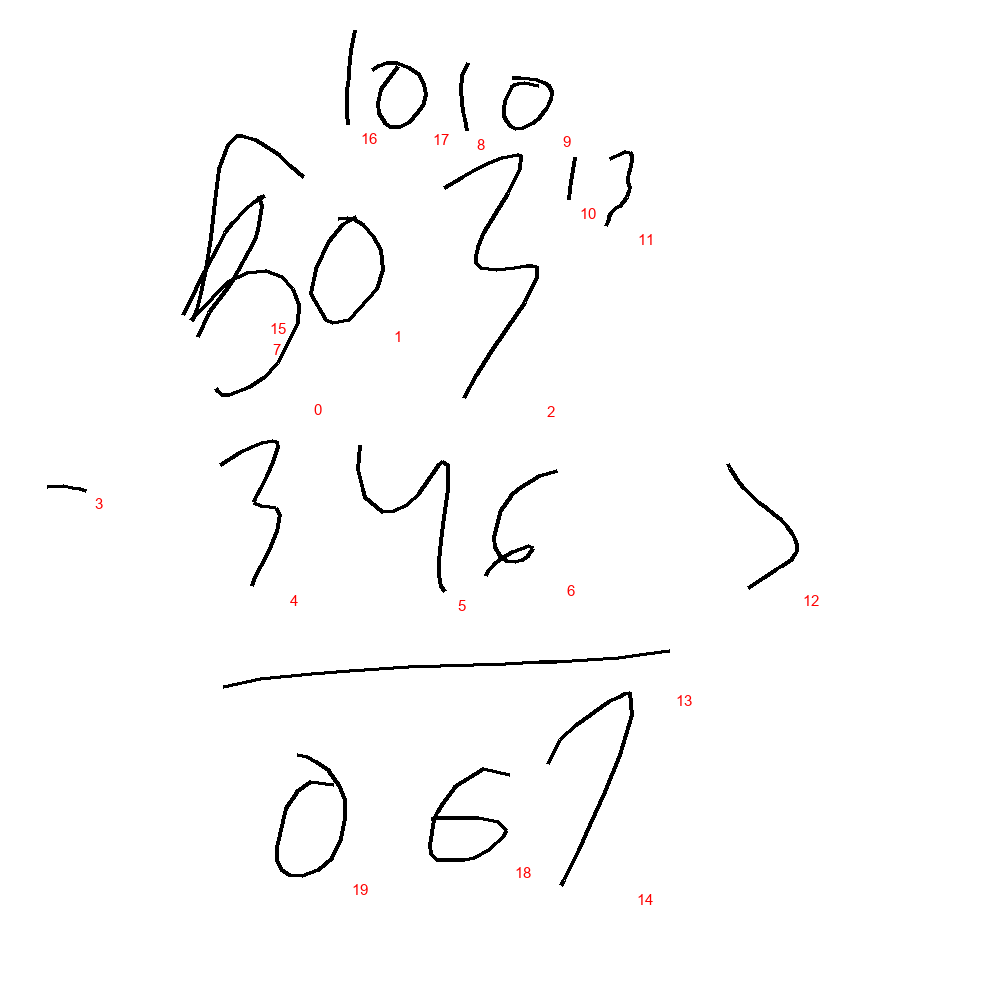 1010
16 17 8 9
503 13
10
11
15
1
7
0 2
- 346 >
3
4 5 6 12
13
067
18
19 14